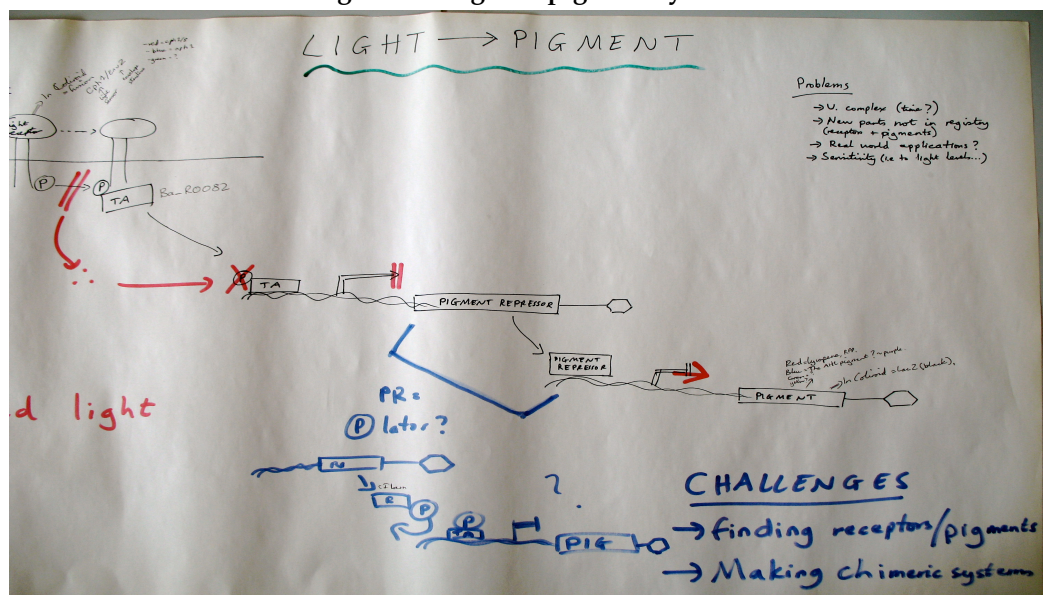 LIGHT → PIGMENT
Problems
→ V. complex (time?)
→ New parts not in registry
(receptors + pigments)
→ Real world applications?
→ Sensitivity (i.e to light levels...)
In Coliroid
P
P
TA
Ba_R0082
TA
PIGMENT REPRESSOR
PIGMENT
REPRESSOR
Red = lycopene, RFP.
In Coliroid = LacZ (black).
PIGMENT
d light
PR =
P lator?
R
P
P
TA
?
PIG
CHALLENGES
→ finding receptors/pigments
→ Making chimeric systems